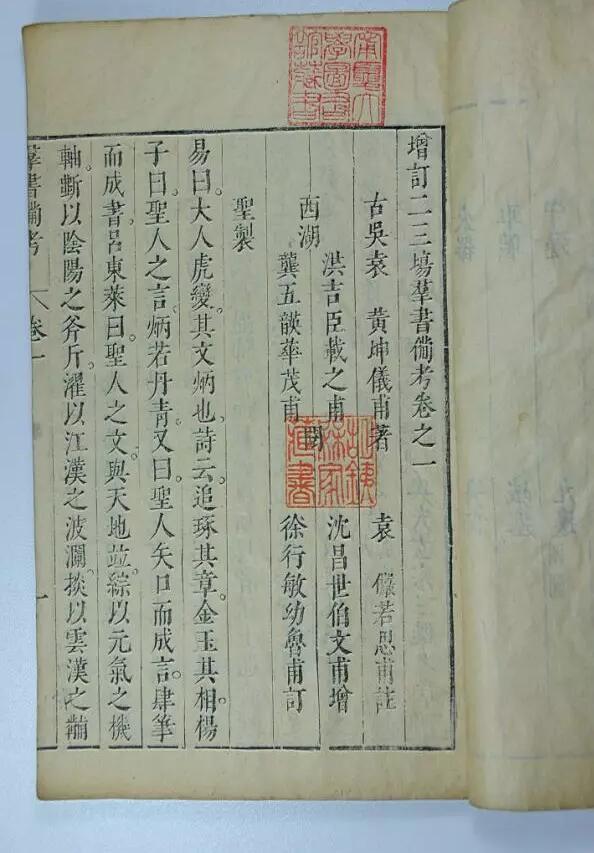 學圖書
館藏書
增訂二三塲羣書備考卷之一
古吳袁 黃坤儀甫著 袁 儼若思甫註
洪吉臣載之甫 沈昌世伯文甫增
西湖 閱
龔五韺華茂甫 徐行敏幼魯甫訂
聖製
易曰。大人虎變。其文炳也。詩云。追琢其章。金玉其相。楊
子曰。聖人之言。炳若丹青。又曰。聖人矢口而成言。肆筆
而成書。呂東萊曰。聖人之文。與天地並。綜以元氣之機
軸。斵以陰陽之斧斤。濯以江漢之波瀾。掞以雲漢之黼
羣書備考 卷一 一